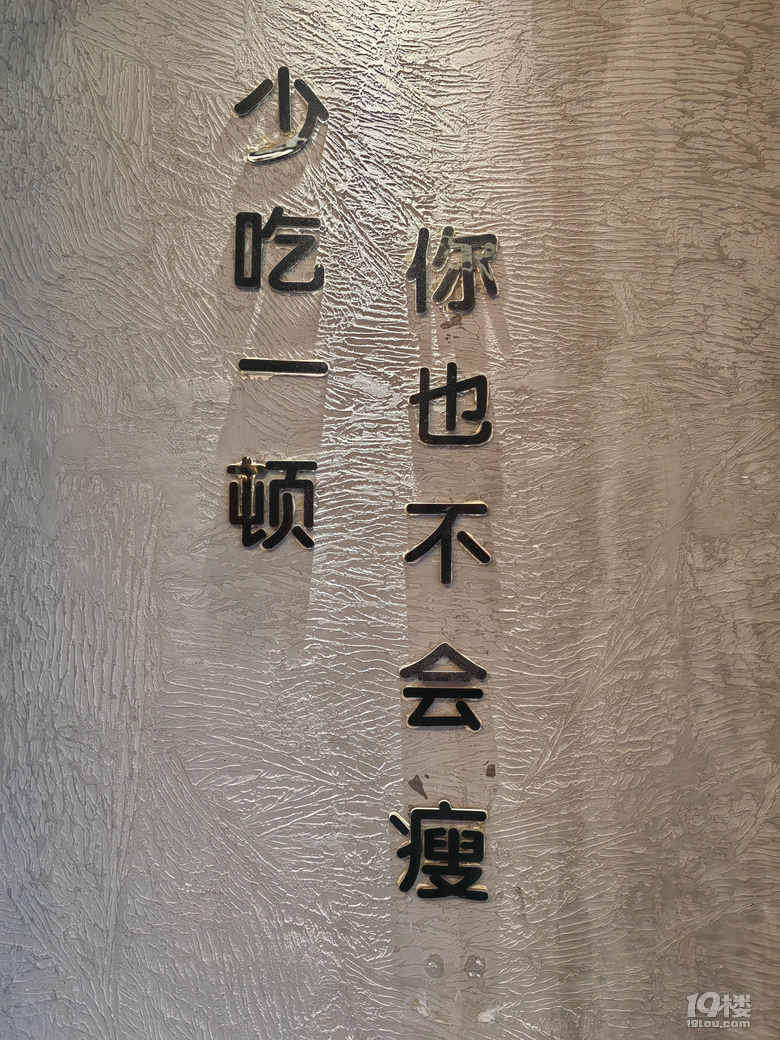 少吃一顿
你也不会瘦
19楼
19lou.com